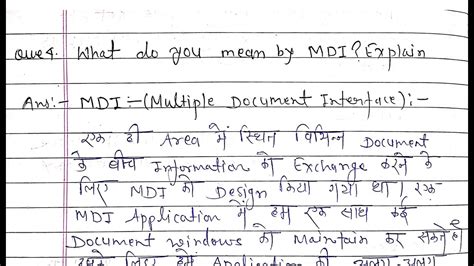 Que 4. What do you mean by MDI? Explain
Ans:- MDI:-(Multiple Document Interface):-
एक ही Area में स्थित विभिन्न Document
के बीच Information को Exchange करने के
लिए MDI को Design किया गया था। एक
MDI Application में हम एक साथ कई
Document windows को Maintain कर सकते है
इसके लिए हमें Application की अलग-अलग